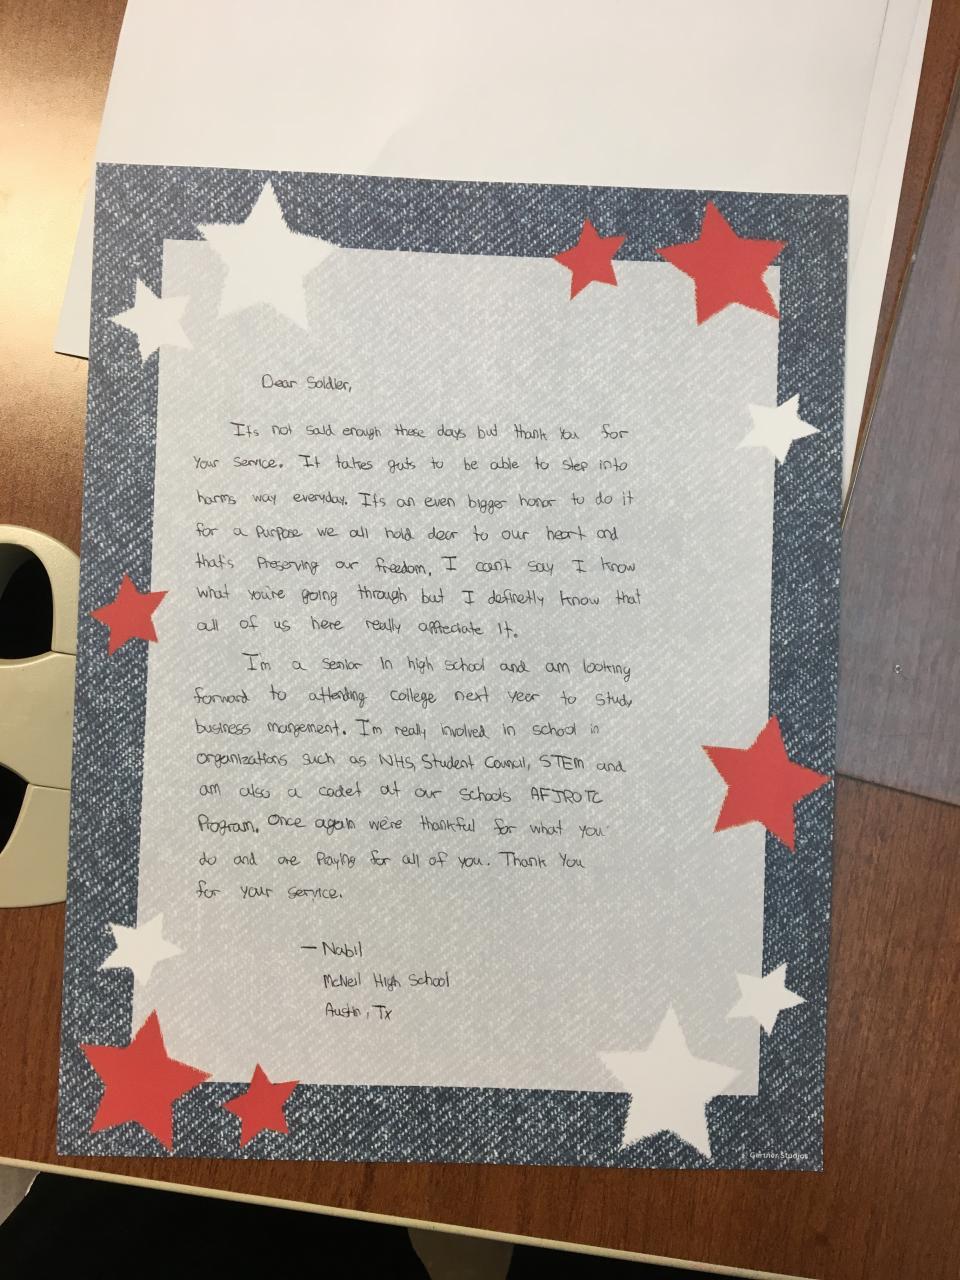 Dear Soldier,
It's not said enough these days but thank you for
your service. It takes guts to be able to step into
harms way everyday. It's an even bigger honor to do it
for a purpose we all hold dear to our heart and
that's preserving our freedom. I can't say I know
what you're going through but I definetly know that
all of us here really appreciate it.
I'm a senior in high school and am looking
forward to attending college next year to study
business mangement. I'm really involved in school in
organizations such as NHS, Student Council, STEM and
am also a cadet at our schools AFJROTC
Program. Once again we're thankful for what you
do and are Playing for all of you. Thank You
for your service.
— Nabil
McNeil High School
Austin, Tx
Gartner Studios